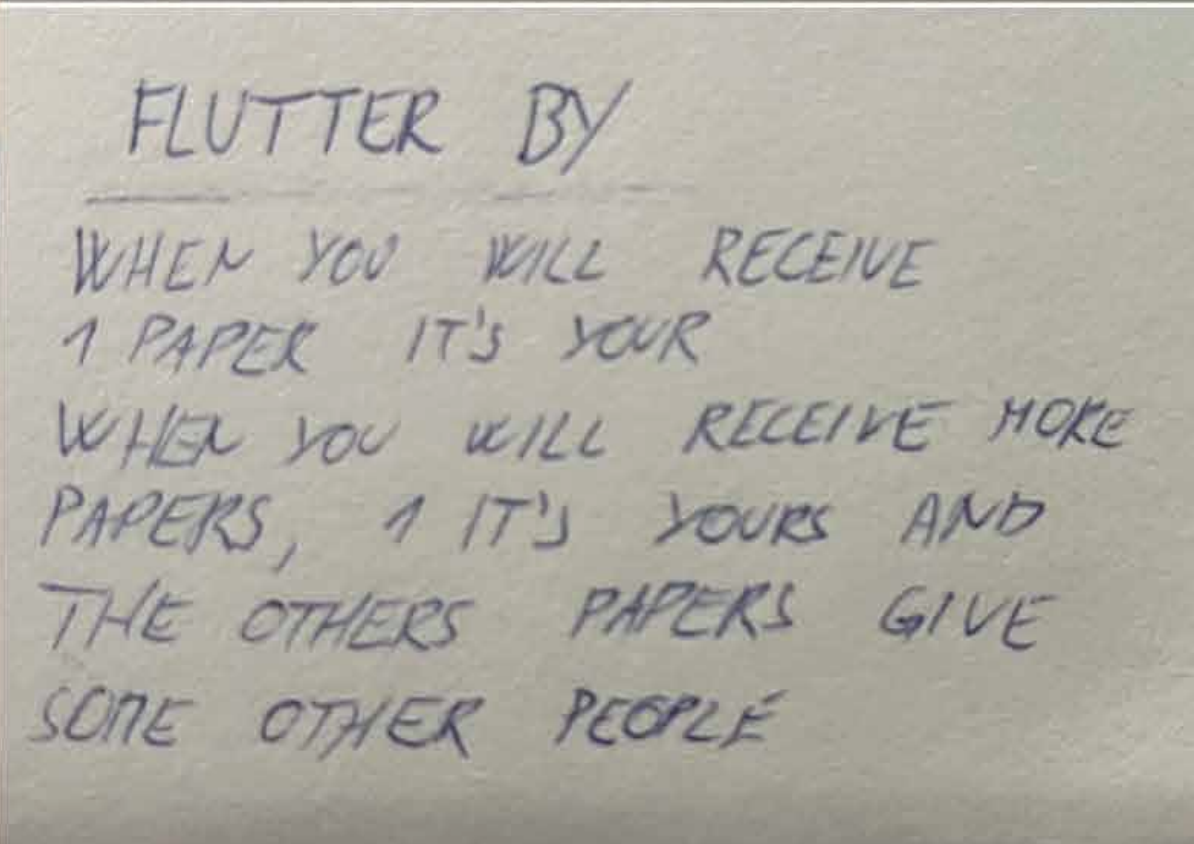 FLUTTER BY
WHEN YOU WILL RECEIVE
1 PAPER IT'S YOUR
WHEN YOU WILL RECEIVE MORE
PAPERS, 1 IT'S YOURS AND
THE OTHERS PAPERS GIVE
SOME OTHER PEOPLE